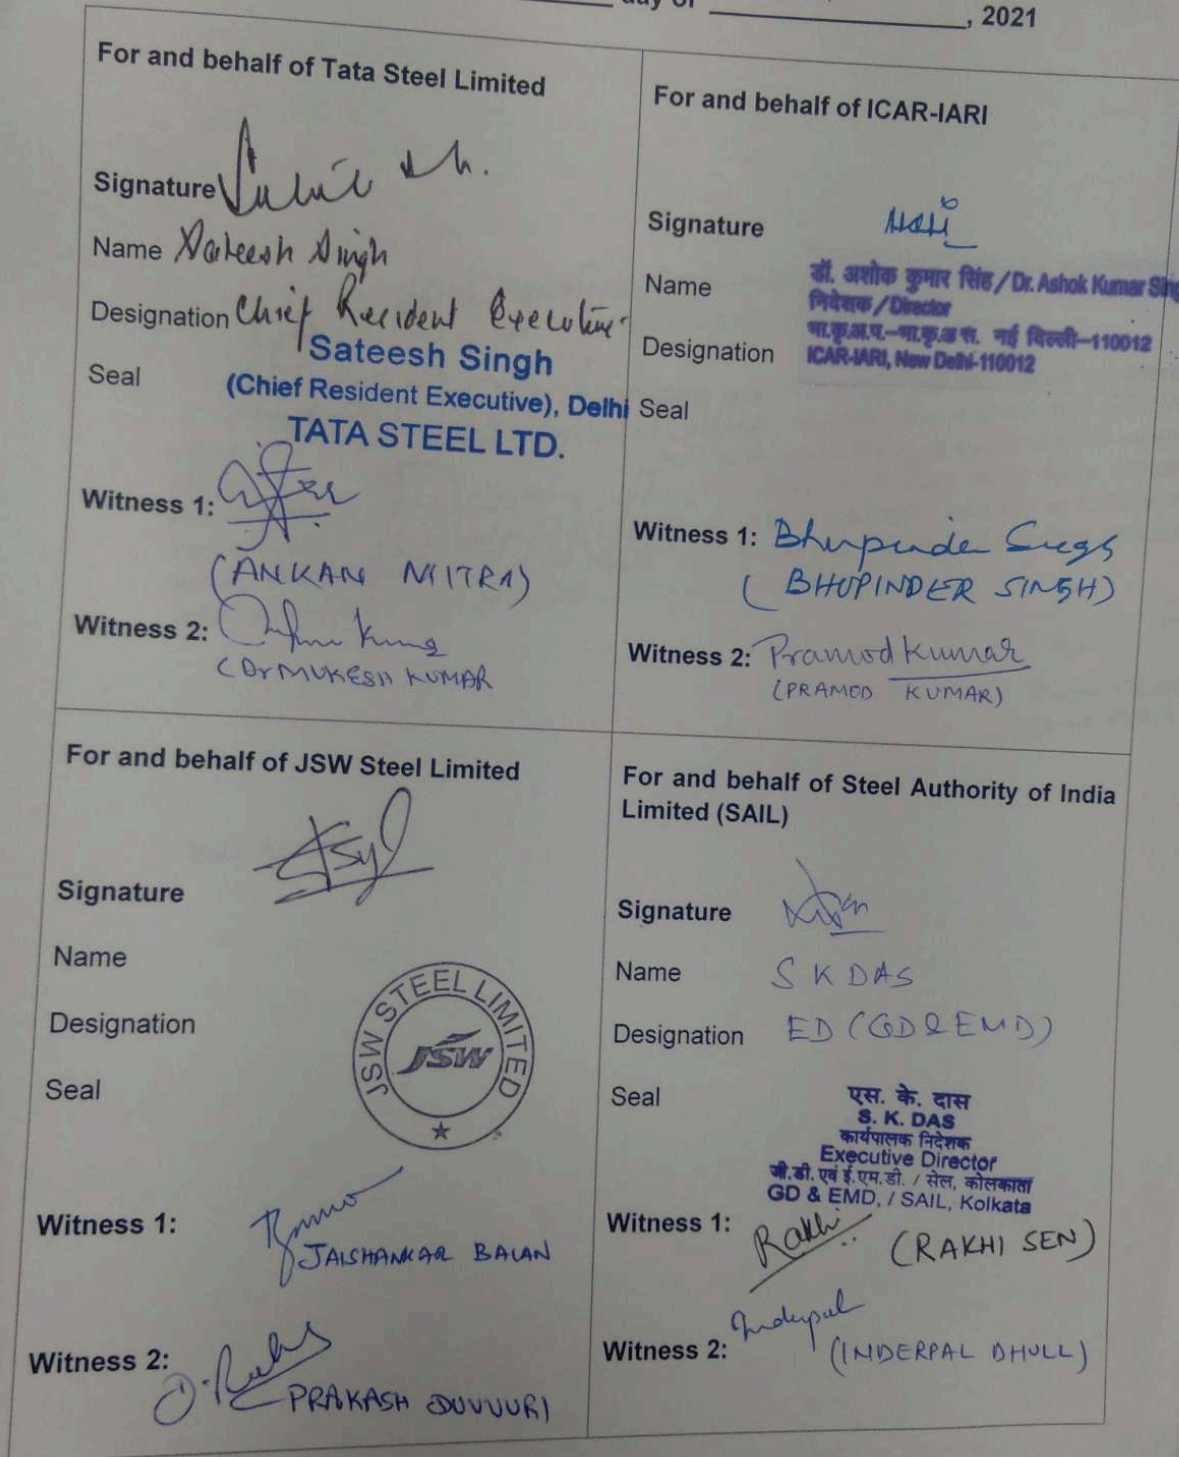 day of , 2021
For and behalf of Tata Steel Limited
Signature
Name Sateesh Singh
Designation Chief Resident Executive
Seal
Sateesh Singh
(Chief Resident Executive), Delhi
TATA STEEL LTD.
Witness 1:
(ANKAN MITRA)
Witness 2:
(Dr MUKESH KUMAR
For and behalf of ICAR-IARI
Signature
Name
डॉ. अशोक कुमार सिंह / Dr. Ashok Kumar
निदेशक / Director
Designation
भा.कृ.अ.प.–भा.कृ.अ.स. नई दिल्ली–110012
ICAR-IARI, New Delhi-110012
Seal
Witness 1: Bhupinder
(BHUPINDER SINGH)
Witness 2: Pramod Kumar
(PRAMOD KUMAR)
For and behalf of JSW Steel Limited
Signature
Name
Designation
Seal
JSW STEEL LIMITED
JSW
Witness 1:
JAISHANKAR BALAN
Witness 2:
PRAKASH DUVVURI
For and behalf of Steel Authority of India
Limited (SAIL)
Signature
Name S K DAS
Designation ED (GD & EMD)
Seal
एस. के. दास
S. K. DAS
कार्यपालक निदेशक
Executive Director
जी.डी. एवं ई.एम.डी. / सेल, कोलकाता
GD & EMD, / SAIL, Kolkata
Witness 1: Rakhi (RAKHI SEN)
Witness 2: Inderpal
(INDERPAL DHULL)